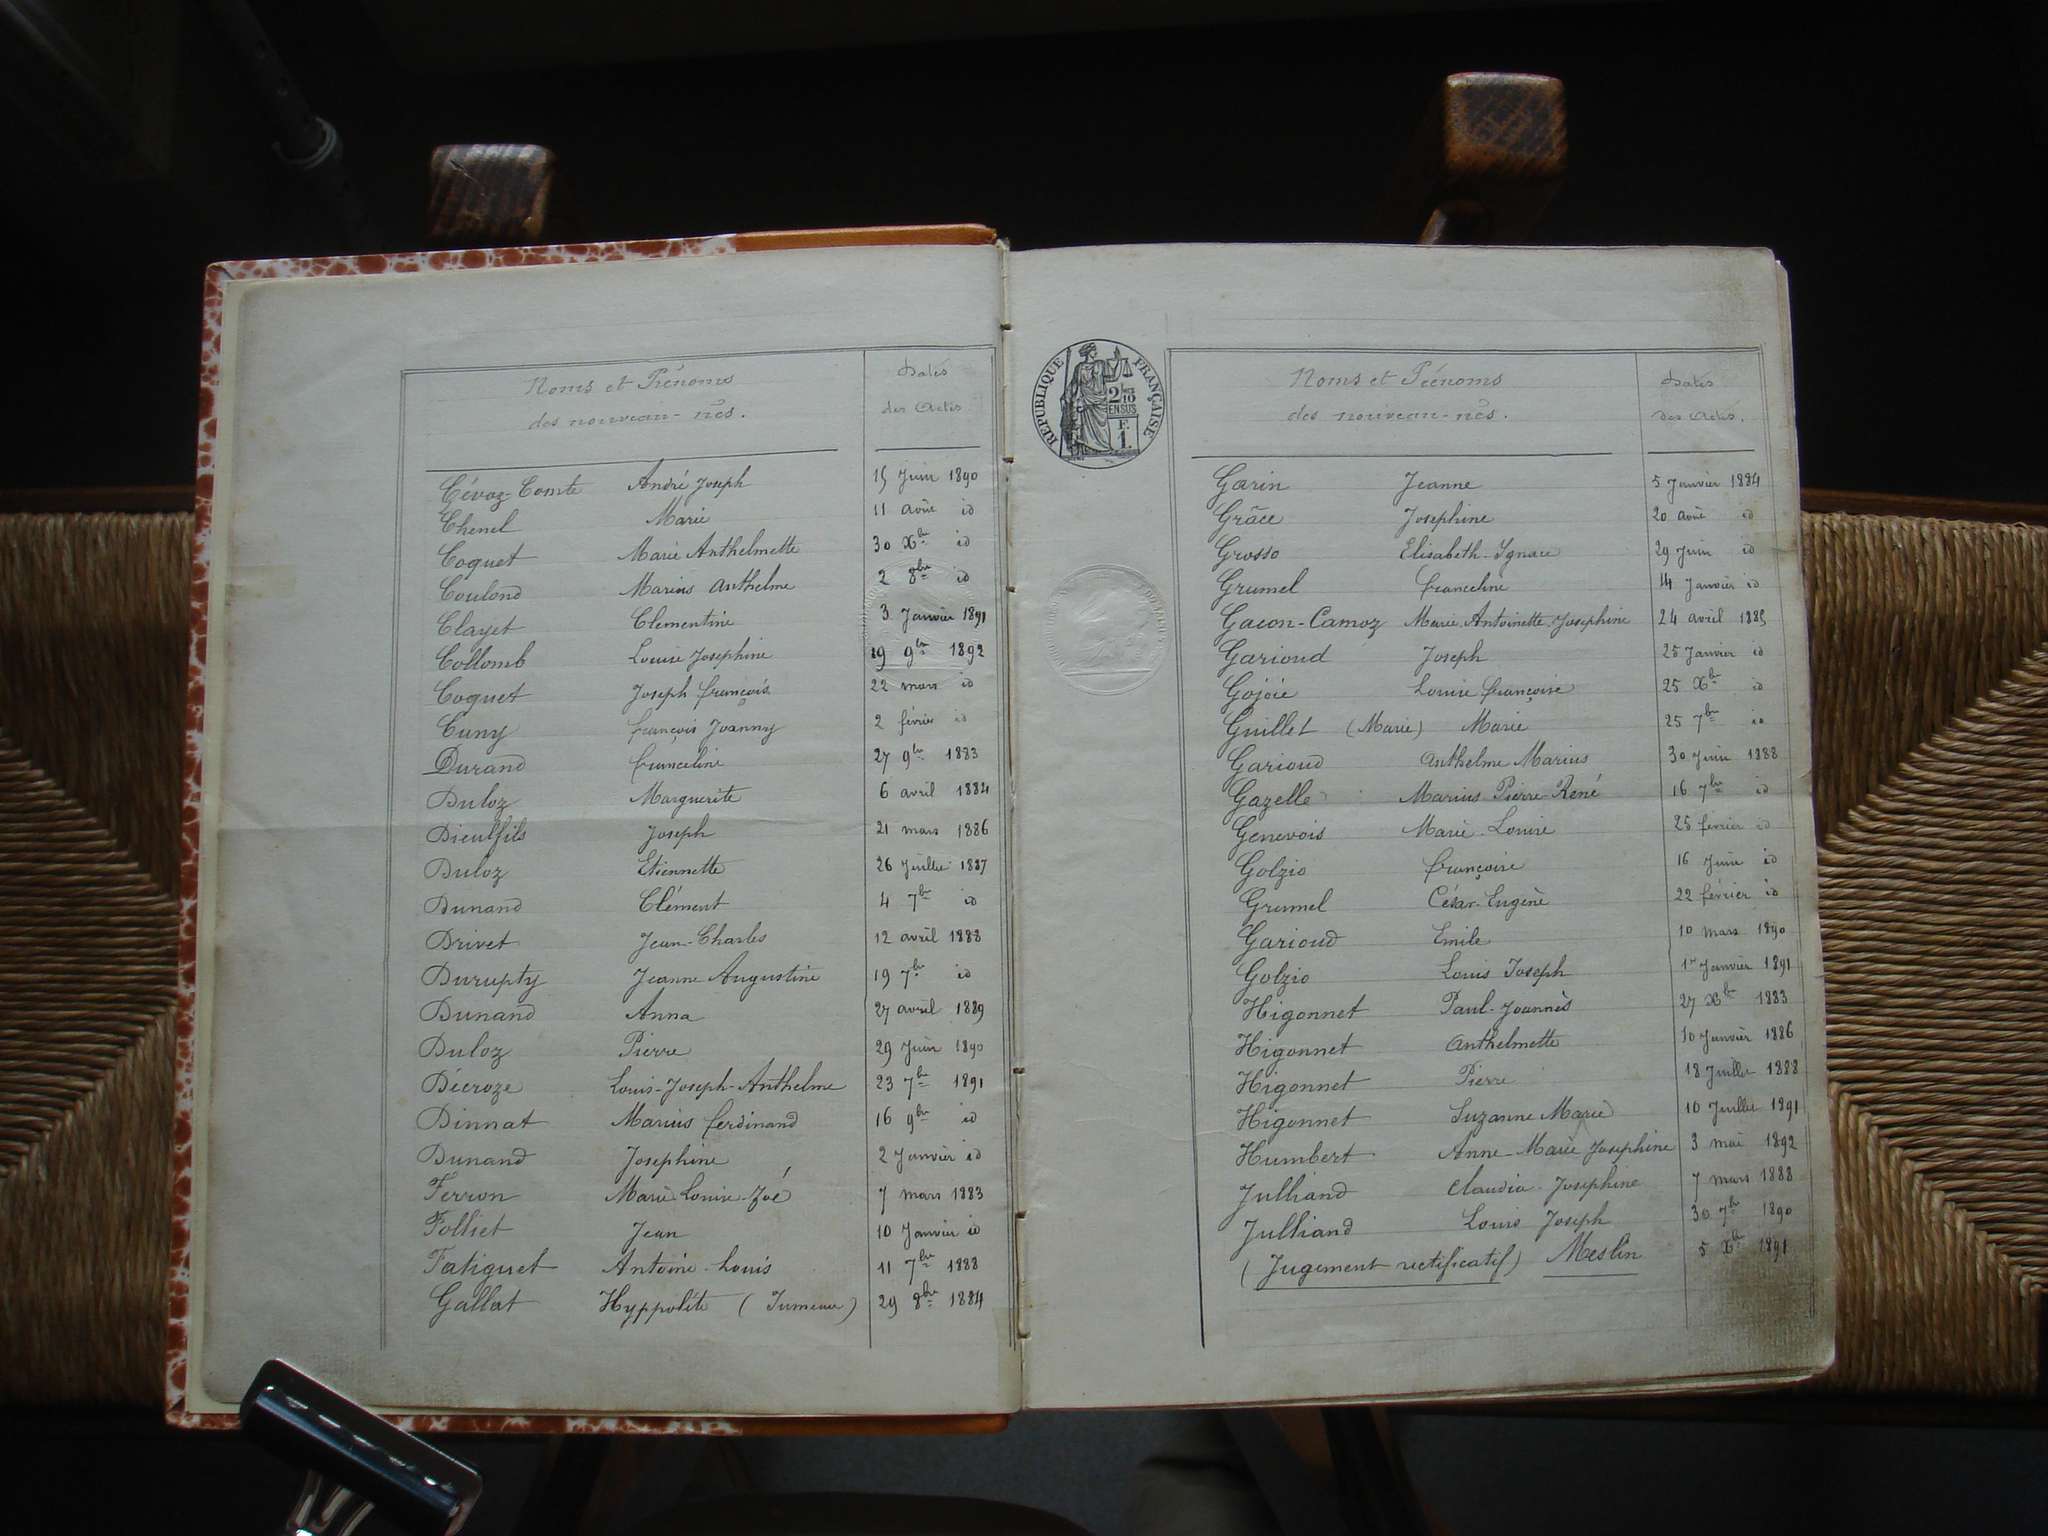 Noms et Prénoms Dates
des nouveau-nés. des Actes
Cévoz-Comte André Joseph 15 Juin 1890
Chenel Marie 11 Août id
Coquet Marie Anthelmette 30 Xbre id
Coulond Marius Anthelme 2 8bre id
Clayet Clementine 3 Janvier 1891
Collomb Louise Josephine 19 9bre 1892
Coquet Joseph François 22 mars id
Cuny François Joanny 2 février id
Durand Franceline 27 9bre 1883
Duloz Marguerite 6 avril 1884
Dieulfils Joseph 21 mars 1886
Duloz Etiennette 26 Juillet 1887
Dunand Clément 4 7bre id
Drivet Jean-Charles 12 avril 1888
Durupty Jeanne Augustine 19 7bre id
Dunand Anna 27 avril 1889
Duloz Pierre 29 Juin 1890
Décroze Louis-Joseph-Anthelme 23 7bre 1891
Dinnat Marius Ferdinand 16 9bre id
Dunand Josephine 2 Janvier id
Ferron Marie Louise-Zoé 7 mars 1883
Folliet Jean 10 Janvier id
Fatiguet Antoine-Louis 11 7bre 1888
Gallat Hyppolite (Jumeau) 29 8bre 1884
RÉPUBLIQUE FRANÇAISE
2/10
EN SUS
F.
1.
Noms et Prénoms Dates
des nouveau-nés. des Actes.
Garin Jeanne 5 Janvier 1884
Grâce Josephine 20 Août id
Grosso Elisabeth-Ignace 29 Juin id
Grumel Franceline 4 Janvier id
Gacon-Camoz Marie Antoinette Josephine 24 avril 1885
Garioud Joseph 25 Janvier id
Gojoie Louise Françoise 25 Xbre id
Guillet (Marie) Marie 25 7bre id
Garioud Anthelme Marius 30 Juin 1888
Gazelle Marius Pierre René 16 7bre id
Genevois Marie-Louise 25 fevrier id
Golzio Françoise 16 Juin id
Grumel César-Eugène 22 février id
Garioud Emile 10 mars 1890
Golzio Louis Joseph 1er Janvier 1891
Higonnet Paul-Joannès 27 Xbre 1883
Higonnet Anthelmette 10 Janvier 1886
Higonnet Pierre 18 Juillet 1888
Higonnet Suzanne Marie 10 Juillet 1891
Humbert Anne-Marie Josephine 3 mai 1892
Julliand Claudia-Josephine 7 mars 1888
Julliand Louis Joseph 30 7bre 1890
(Jugement rectificatif) Meslin 5 Xbre 1891